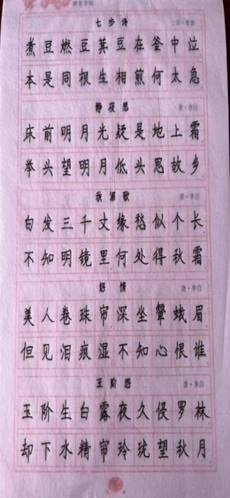 七步诗 三国·曹植
煮豆燃豆萁豆在釜中位
本是同根生相煎何太急
静夜思 唐·李白
床前明月光疑是地上霜
举头望明月低头思故乡
秋浦歌 唐·李白
白发三千丈缘愁似个长
不知明镜里何处得秋霜
怨情 唐·李白
美人卷珠帘深坐颦蛾眉
但见泪痕湿不知心恨谁
玉阶怨 唐·李白
玉阶生白露夜久侵罗袜
却下水精帘玲珑望秋月